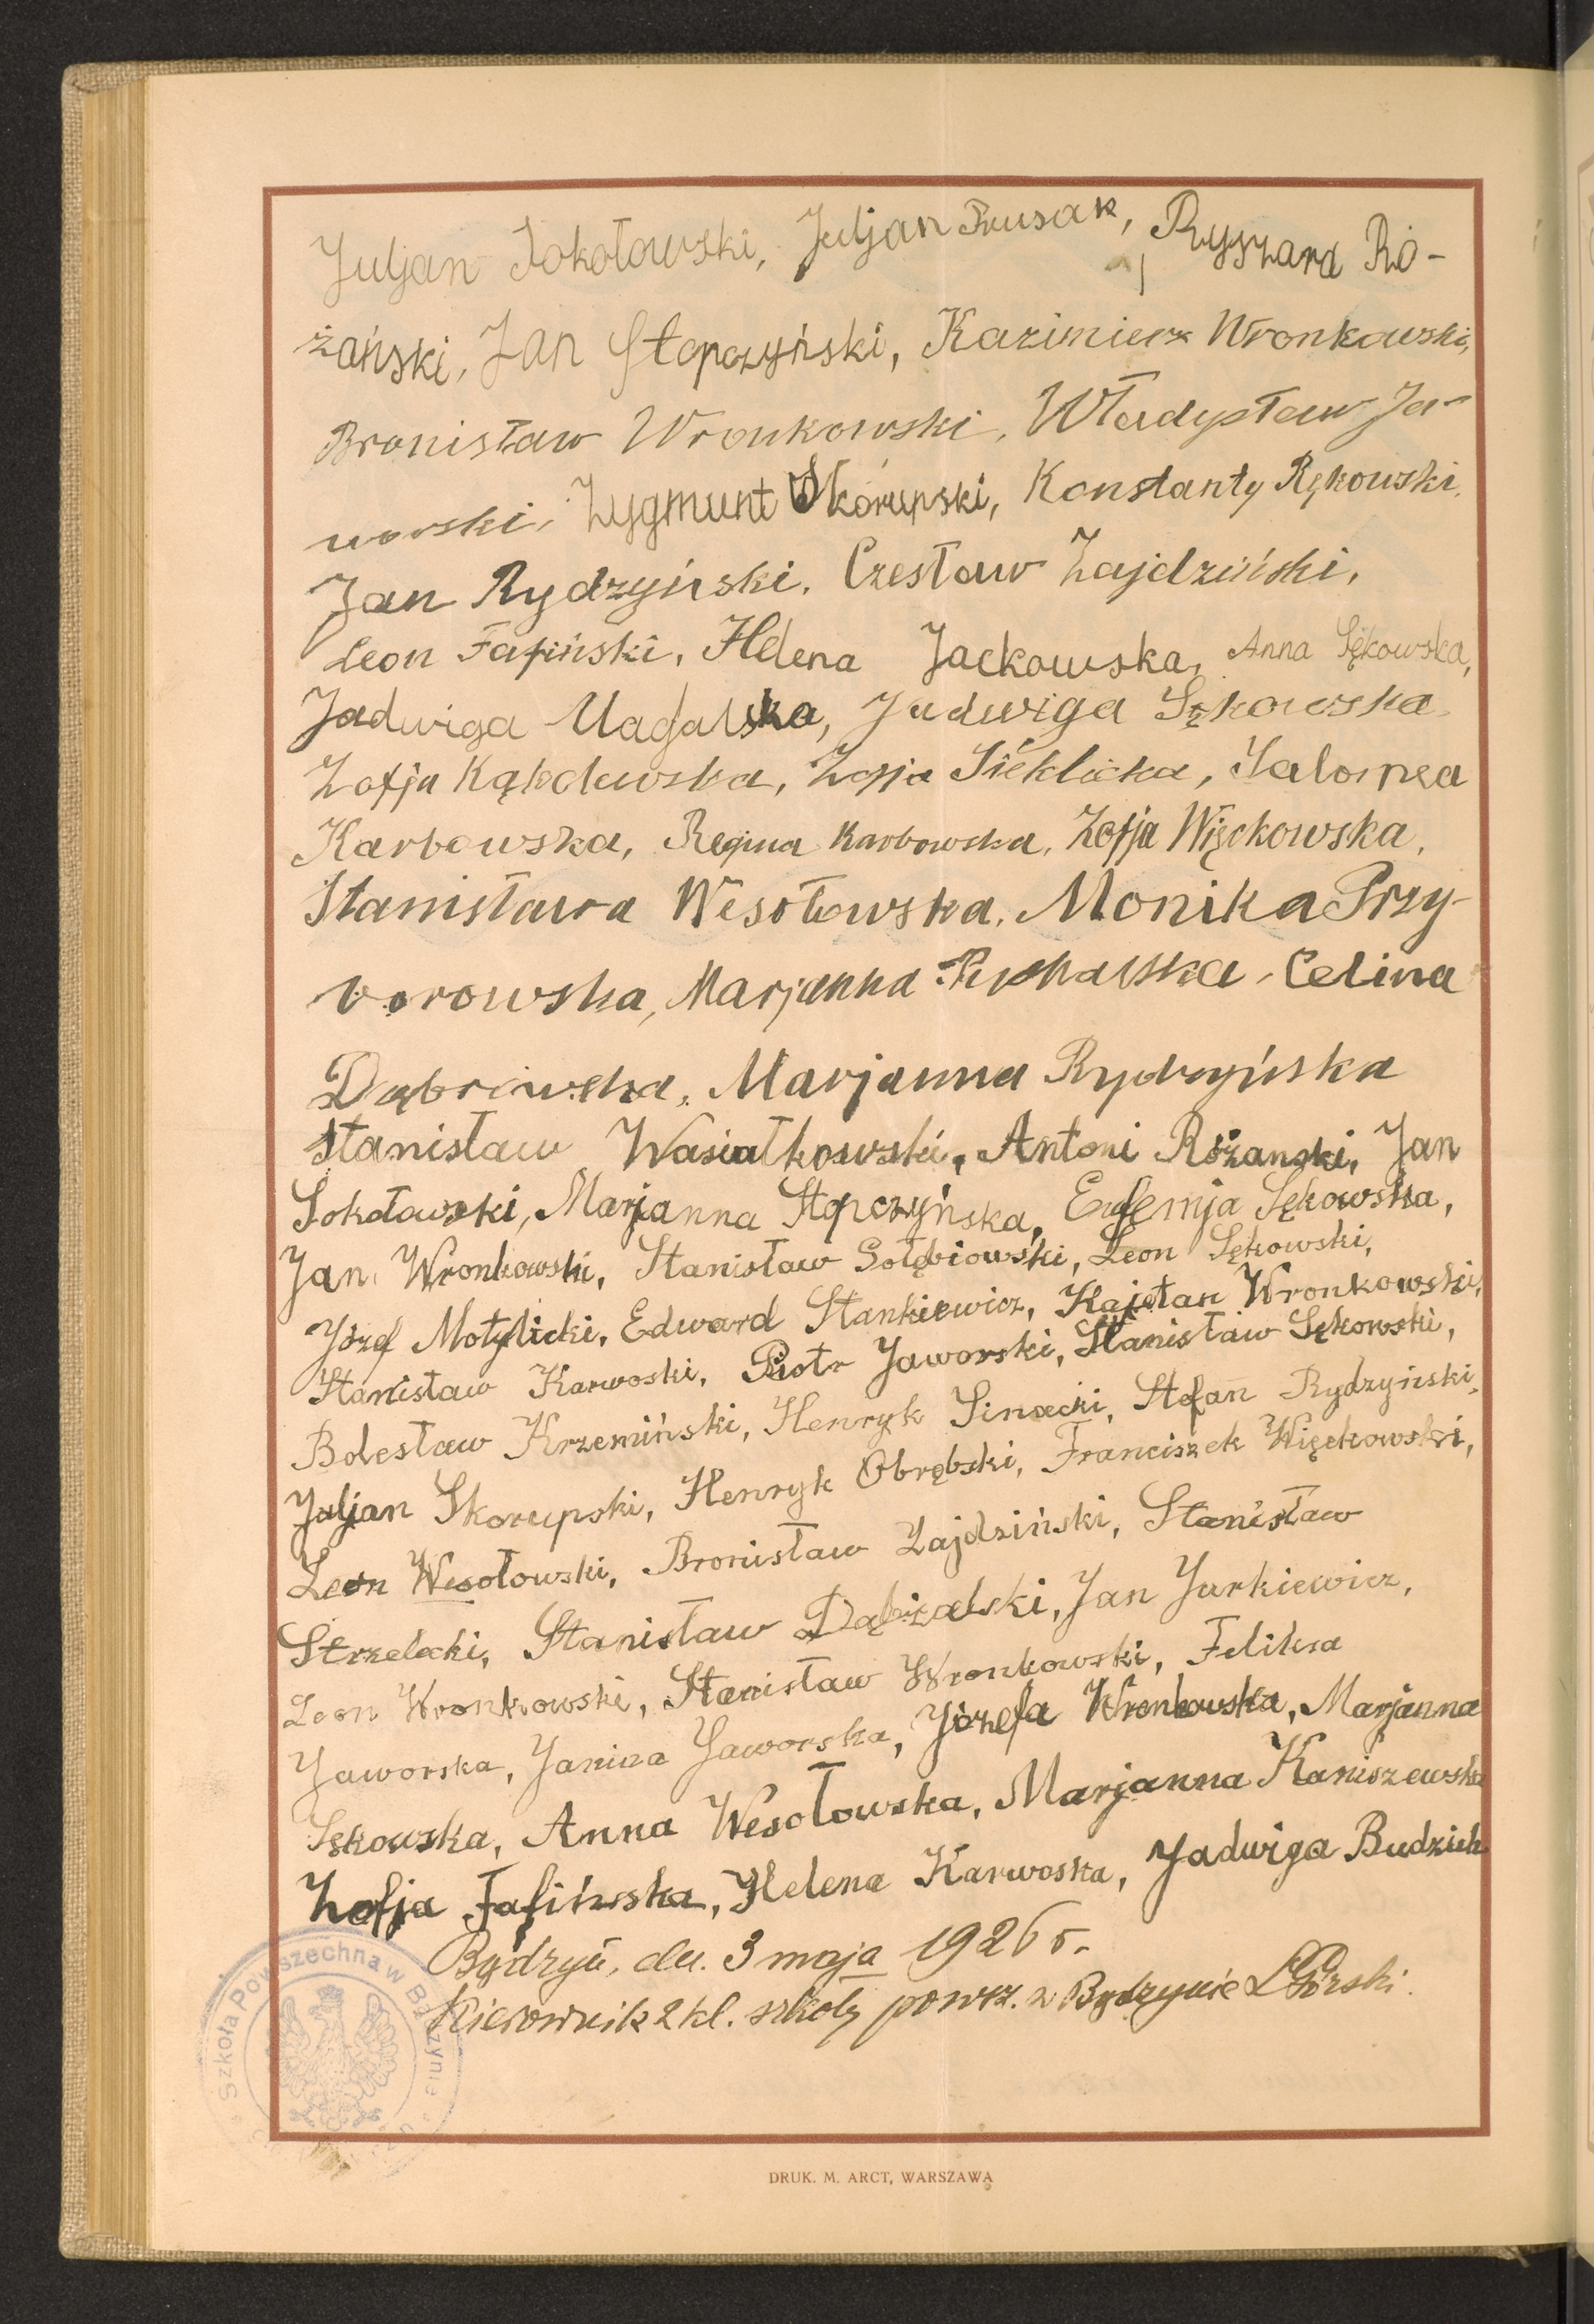 Juljan Sokołowski, Juljan Prusak, Ryszard Ró-
żański, Jan Stopczyński, Kazimierz Wronkowski,
Bronisław Wronkowski, Władysław Ja-
worski, Zygmunt Skorupski, Konstanty Rękowski,
Jan Rydzyński, Czesław Zajdziński,
Leon Fafiński, Helena Jackowska, Anna Sękowska,
Jadwiga Magalska, Jadwiga Sękowska
Zofja Zofja Sieklicka, Salomea
Karbowska, Regina Karbowska, Zofja Więckowska,
Stanisława Wesołowska, Monika Przy-
borowska, Marjanna Puchalska, Celina
Dąbrowska, Marjanna Rydzyńska
Stanisław Wasiatkowski, Antoni Różanski, Jan
Sokołowski, Marjanna Stopczyńska, Eufemja Sękowska,
Jan Wronkowski, Stanisław Gołębiowski, Leon Sękowski,
Józef Motylicki, Edward Stankiewicz, Kajetan Wronkowski,
Stanisław Karwoski, Piotr Jaworski, Stanisław Sękowski,
Bolesław Krzemiński, Henryk Sinacki, Stefan Rydzyński,
Juljan Skorupski, Henryk Obrębski, Franciszek Więckowski,
Leon Wesołowski, Bronisław Zajdziński, Stanisław
Strzelecki, Stanisław Jan Jurkiewicz,
Leon Wronkowski, Stanisław Wronkowski, Feliksa
Jaworska, Janina Jaworska, Józefa Wronkowska, Marjanna
Sękowska, Anna Wesołowska, Marjanna Kaniszewska
Zofja Fafińska, Helena Karwoska, Jadwiga Budzich
Bądzyń, dn. 3 maja 1926 r.
Kierownik 2 kl. szkoły powsz. w Bądzynie Górski.
Szkoła Powszechna w
DRUK. M. ARCT, WARSZAWA